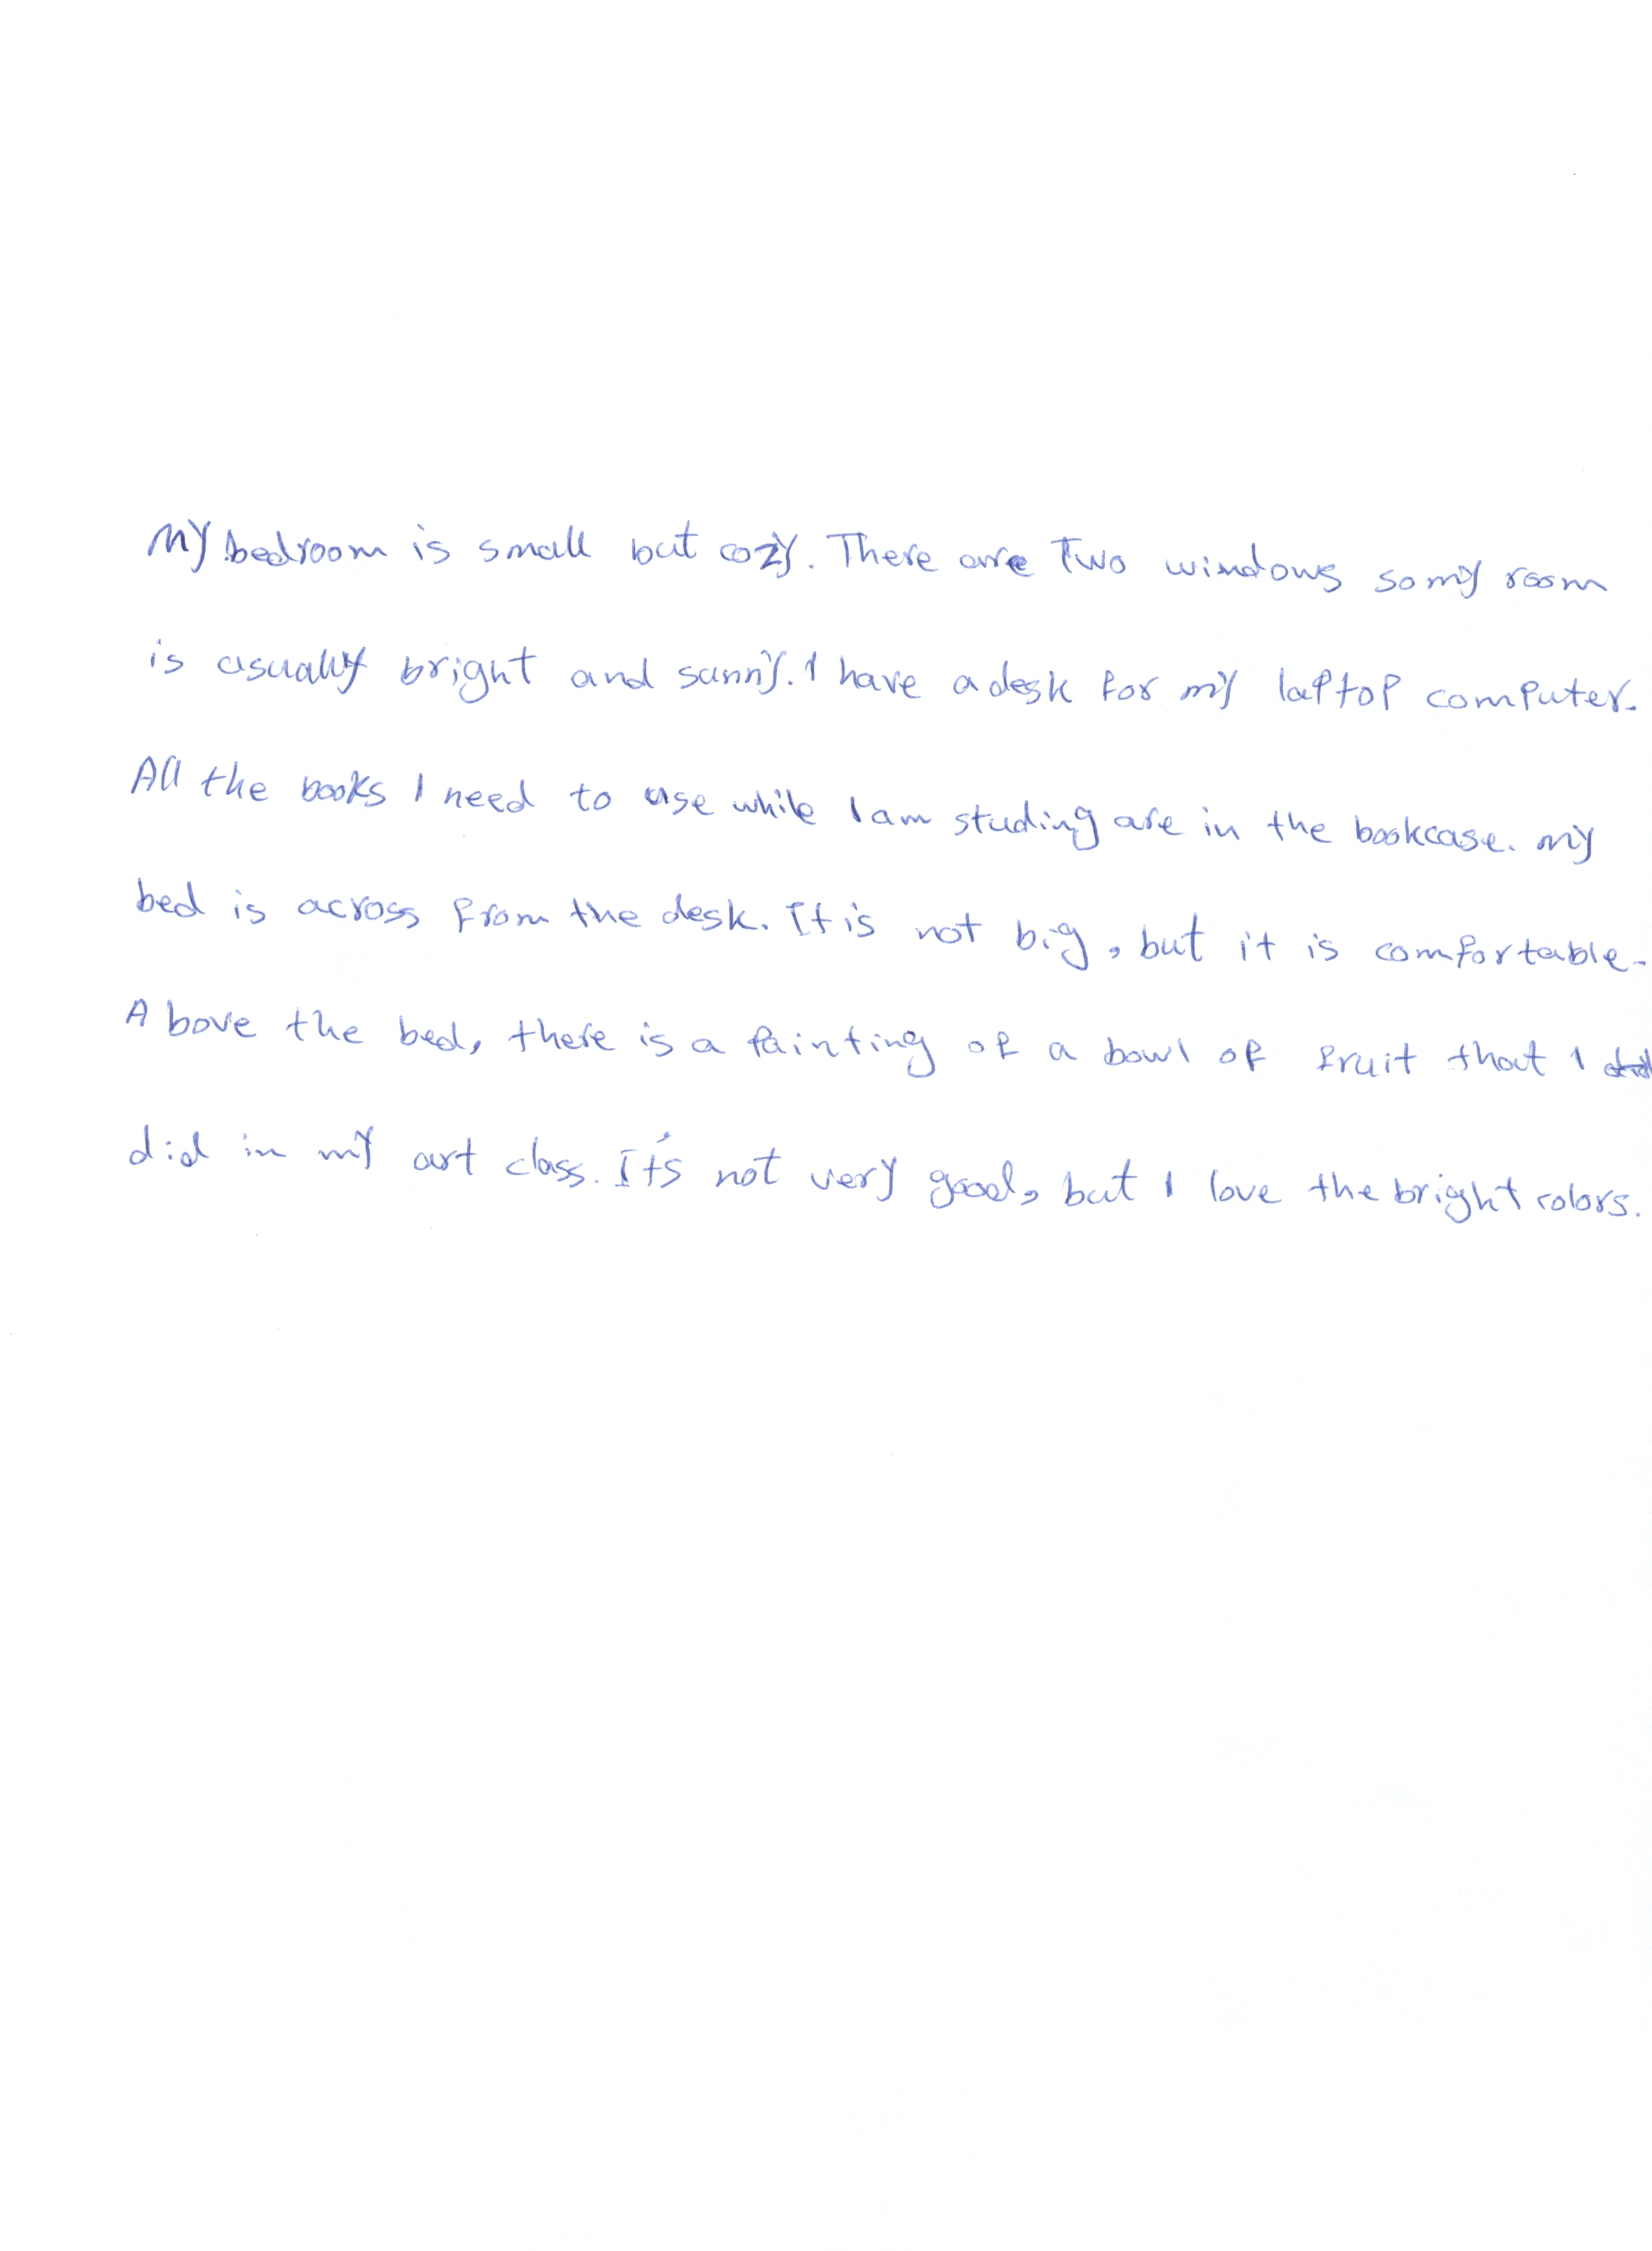 My bedroom is small but cozy. There are Two windows so my room
is usually bright and sunny. I have a desk for my laptop computer.
All the books I need to use while I am studing are in the bookcase. my
bed is across from the desk. It is not big, but it is comfortable.
Above the bed, there is a painting of a bowl of fruit that I did
did in my art class. It's not very good, but I love the bright colors.